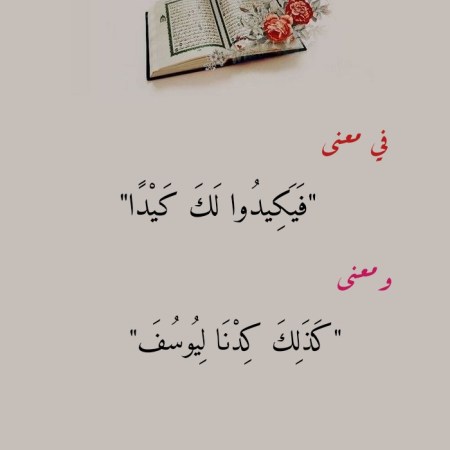 في معنى
"فَيَكِيدُوا لَكَ كَيْدًا"
ومعنى
"كَذَلِكَ كِدْنَا لِيُوسُفَ"